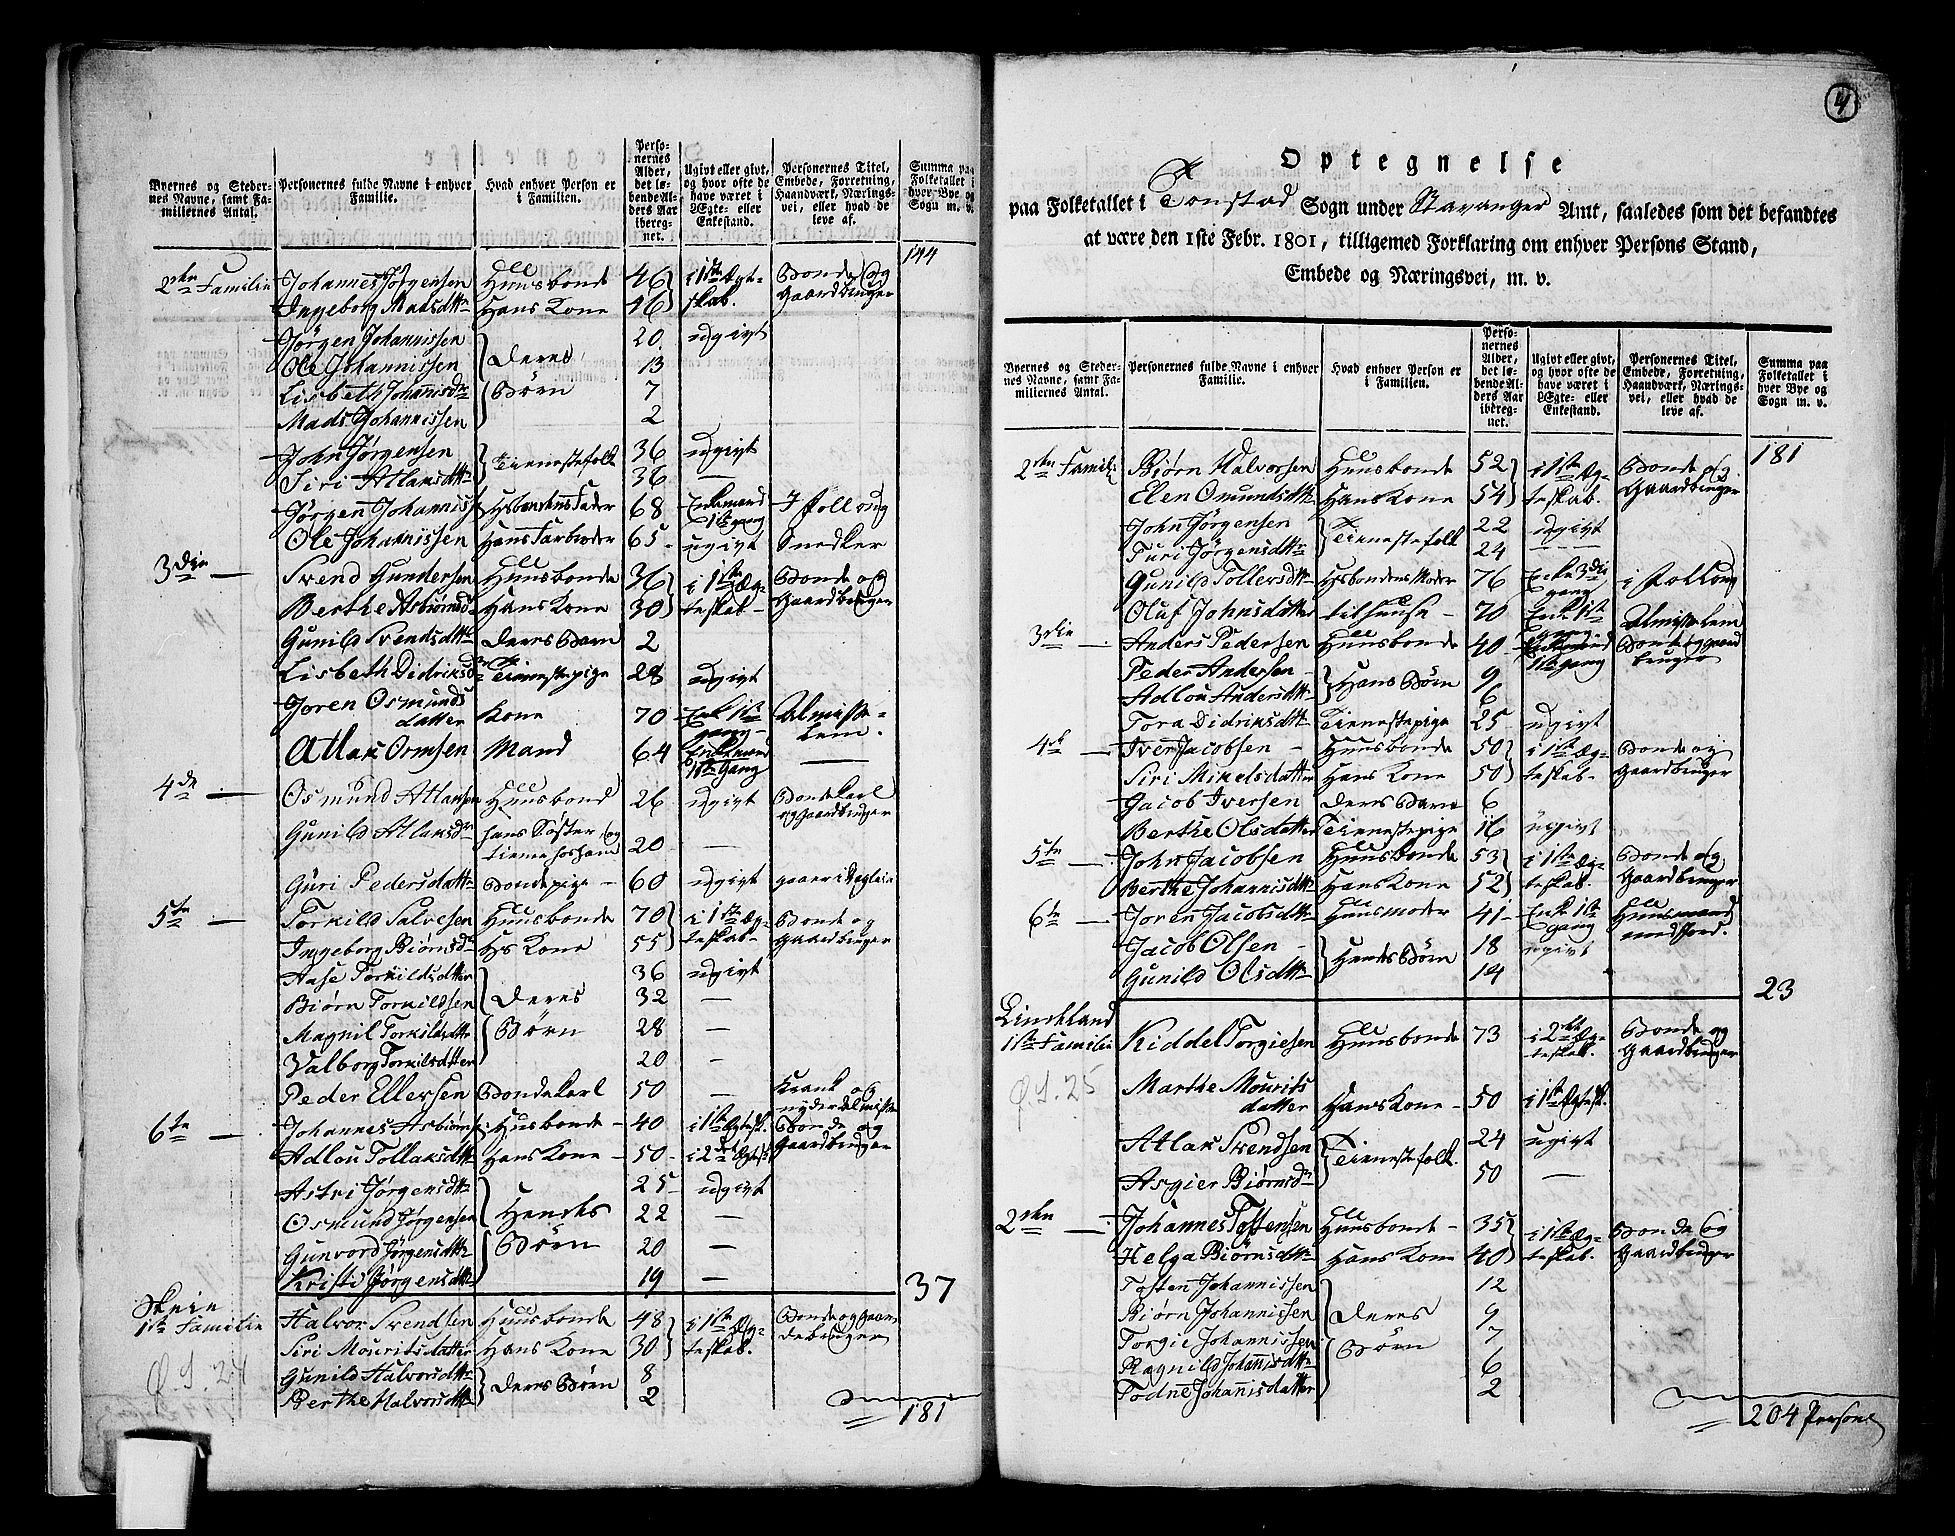 Byernes og Steder-
nes Navne, samt Fa-
miliernes Antal.
Personernes fulde Navne i enhver
Familie.
Hvad enhver Person er
i Familien.
Perso-
nernes
Alder,
det lø-
bende Al-
ders Aar
iberegn-
et.
Ugivt eller givt,
og hvor ofte de
have været i
Ægte- eller
Enkestand.
Personernes Titel,
Embede, Forretning,
Haandværk, Nærings-
vei, eller hvad de
leve af.
Summa paa
Folketallet i
hver Bye og
Sogn m. v.
144
2den Familie Johannes Jørgensen Huusbonde 46 i 1ste Ægt- Bonde og
Ingeborg Madsdttr Hans Kone 46 skab. Gaardbruger
Jørgen Johannissen 20 ugivt
Ole Johannissen Deres 13
Lisbeth Johannisdr Børn 7
Mads Johannissen 2
John Jørgensen Tienestefolk 36 ugivt
Siri Atlaksdttr 36 —
Jørgen Johanniss Hsbondens Fader 68 Enkemand 1ste gang I Folloug
Ole Johannissen Hans Farbroder 65 ugivt Snedker
3die — Svend Gundersen Huusbonde 36 i 1ste Æg- Bonde og
Berthe Asbiørnsd Hans Kone 30 teskab Gaardbruger
Gunild Svendsdttr Deres Barn 2
Lisbeth Didriksd Tienestepige 28 ugivt
Joren Osmunds
datter Kone 70 Enk 1ste gang Almisse-
lem.
Atlak Ormsen Mand 64 Enkemand 1ste Gang —
4de — Osmund Atlaksen Huusbond 26 ugivt Bondekarl
og Gaardbruger
Gunild Atlaksdr hans Søster og
tiener hos ham 20 —
Guri Pedersdattr Bondepige 60 ugivt gaaer i Væglein
5te — Torkild Salvesen Huusbonde 70 i 1ste Æg- Bonde og
Ingeborg Biørnsdr Hs Kone 55 teskab Gaardbruger
Aase Torkildsdatter 36 ugivt
Biørn Torkildsen Deres 32 —
Magnil Torkildsdattr Børn 28 —
Valborg Torkilsdatter 20 —
Peder Ellevsen Bondekarl 50 — Krank og
nyder Almisse
6te — Johannes Asbiørns Husbonde 40 i 1ste Ægtesk. Bonde og
Adlou Tollaksdttr Hans Kone 50 i 2det Ægtesk Gaardbruger
Astri Jørgensdttr 25 ugivt
Osmund Jørgensen Hendes 22 —
Gunvord Jørgensdttr Børn 20 —
Kristi Jørgensdttr 19 —
37
Skeie
1ste Familie Halvor Svendsen Huusbonde 48 i 1ste Æg- Bonde og Gaar-
Siri Mouritsdatter Hans Kone 30 teskab. debruger
Gunild Halvorsdttr Deres Børn 8
Berthe Halvorsdttr 2
Ø.S. 24
181
4
Optegnelse
paa Folketallet i Tonstad Sogn under Stavanger Amt, saaledes som det befandtes
at være den 1ste Febr. 1801, tilligemed Forklaring om enhver Persons Stand,
Embede og Næringsvei, m. v.
Byernes og Steder-
nes Navne, samt Fa-
miliernes Antal.
Personernes fulde Navne i enhver
Familie.
Hvad enhver Person er
i Familien.
Perso-
nernes
Alder,
det lø-
bende Al-
ders Aar
iberegn-
et.
Ugivt eller givt,
og hvor ofte de
have været i
Ægte- eller
Enkestand.
Personernes Titel,
Embede, Forretning,
Haandværk, Nærings-
vei, eller hvad de
leve af.
Summa paa
Folketallet i
hver Bye og
Sogn m. v.
181
2den Famil: Biørn Halvorsen Huusbonde 52 i 1ste Æg- Bonde og
Elen Omundsdttr Hans Kone 54 teskab. Gaardbruger
John Jørgensen Tienestefolk 22 ugivt
Turi Jørgensdttr 24 —
Gunild Tollevsdttr Hsbondens Moder 76 Enke 3die gang i Folloug
Oluf Johnsdatter tilhuse 70 Enk 1ste gang Almisselem
3die — Anders Pedersen Huusbonde 40 Enkemand 1ste gang Bonde og gaard
bruger
Peder Andersen Hans Børn 9
Adlou Andersdttr 6
Tora Didriksdttr Tienestepige 25 ugivt
4de — Iver Jacobsen Huusbonde 50 i 1ste Æg- Bonde og
Siri Mikelsdatter Hans Kone 50 teskab Gaardbruger
Jacob Iversen Deres Barn 6
Berthe Olsdatter Tienestepige 16 ugivt
5te — John Jacobsen Huusbonde 53 i 1ste Æg- Bonde og
Berthe Johannisdttr Hans Kone 52 teskab. Gaardbruger
6te — Joren Jacobsdttr Huusmoder 41 Enk 1ste gang Huusmand
med Jord.
Jacob Olsen Hendes Børn 18 ugivt
Gunild Olsdttr 14
23
Lindeland
1ste Familie Kiddel Torgiesen Huusbonde 73 i 2det Æg- Bonde og
teskab. Gaardbruger
Ø.S. 25
Marthe Mourits
datter Hans Kone 50 i 1ste Ægtesk.
Atlak Svendsen Tienestefolk. 24 ugivt
Asgier Biørnsdr 50 —
2den — Johannes Tostensen Huusbonde 35 i 1ste Æg- Bonde og
Helga Biørnsdttr Hans Kone 40 teskab. Gaardbruger
Tosten Johannissen 12
Biørn Johannissen Deres 9
Torgie Johannissen Børn 7
Ragnild Johannisdttr 6
Todne Johannisdatter 2
204 Persone